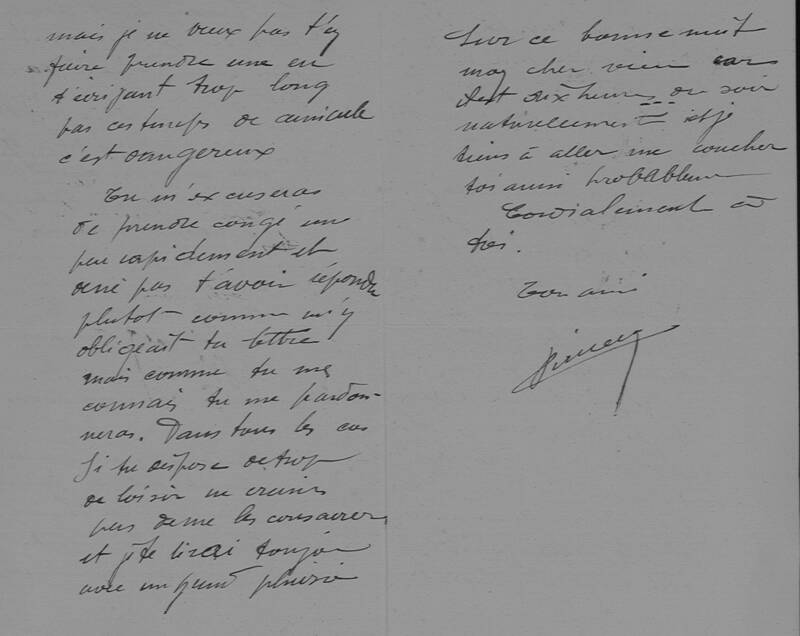 mais je ne veux pas t'y
faire prendre une en
t'ecrivant trop long
par ces temps de canicule
c'est dangereux
Tu m'excuseras
de prendre congé un
peu rapidement et
de ne pas t'avoir répondu
plutot comme m'y
obligeait ta lettre
mais comme tu me
connais tu me pardon-
neras. Dans tous les cas
Si tu dispose de trop
de loisir ne crains
pas de me les consacrer
et je te lirai toujour
avec un grand plaisir
Sur ce bonne nuit
mon cher vieu car
il est dix heures du soir
naturellement et je
tiens à aller me coucher
toi aussi probablem
Cordialement à
toi.
Ton ami